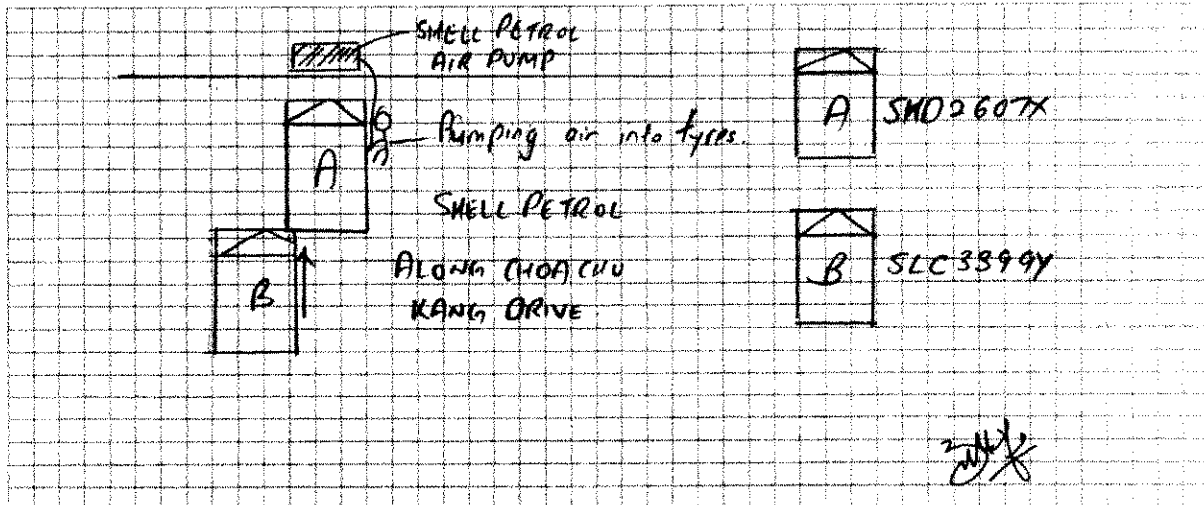 SHELL PETROL
AIR PUMP
A
Pumping air into tyres.
SHELL PETROL
B
ALONG CHOA CHU
KANG DRIVE
A SHD2607X
B SLC3399Y